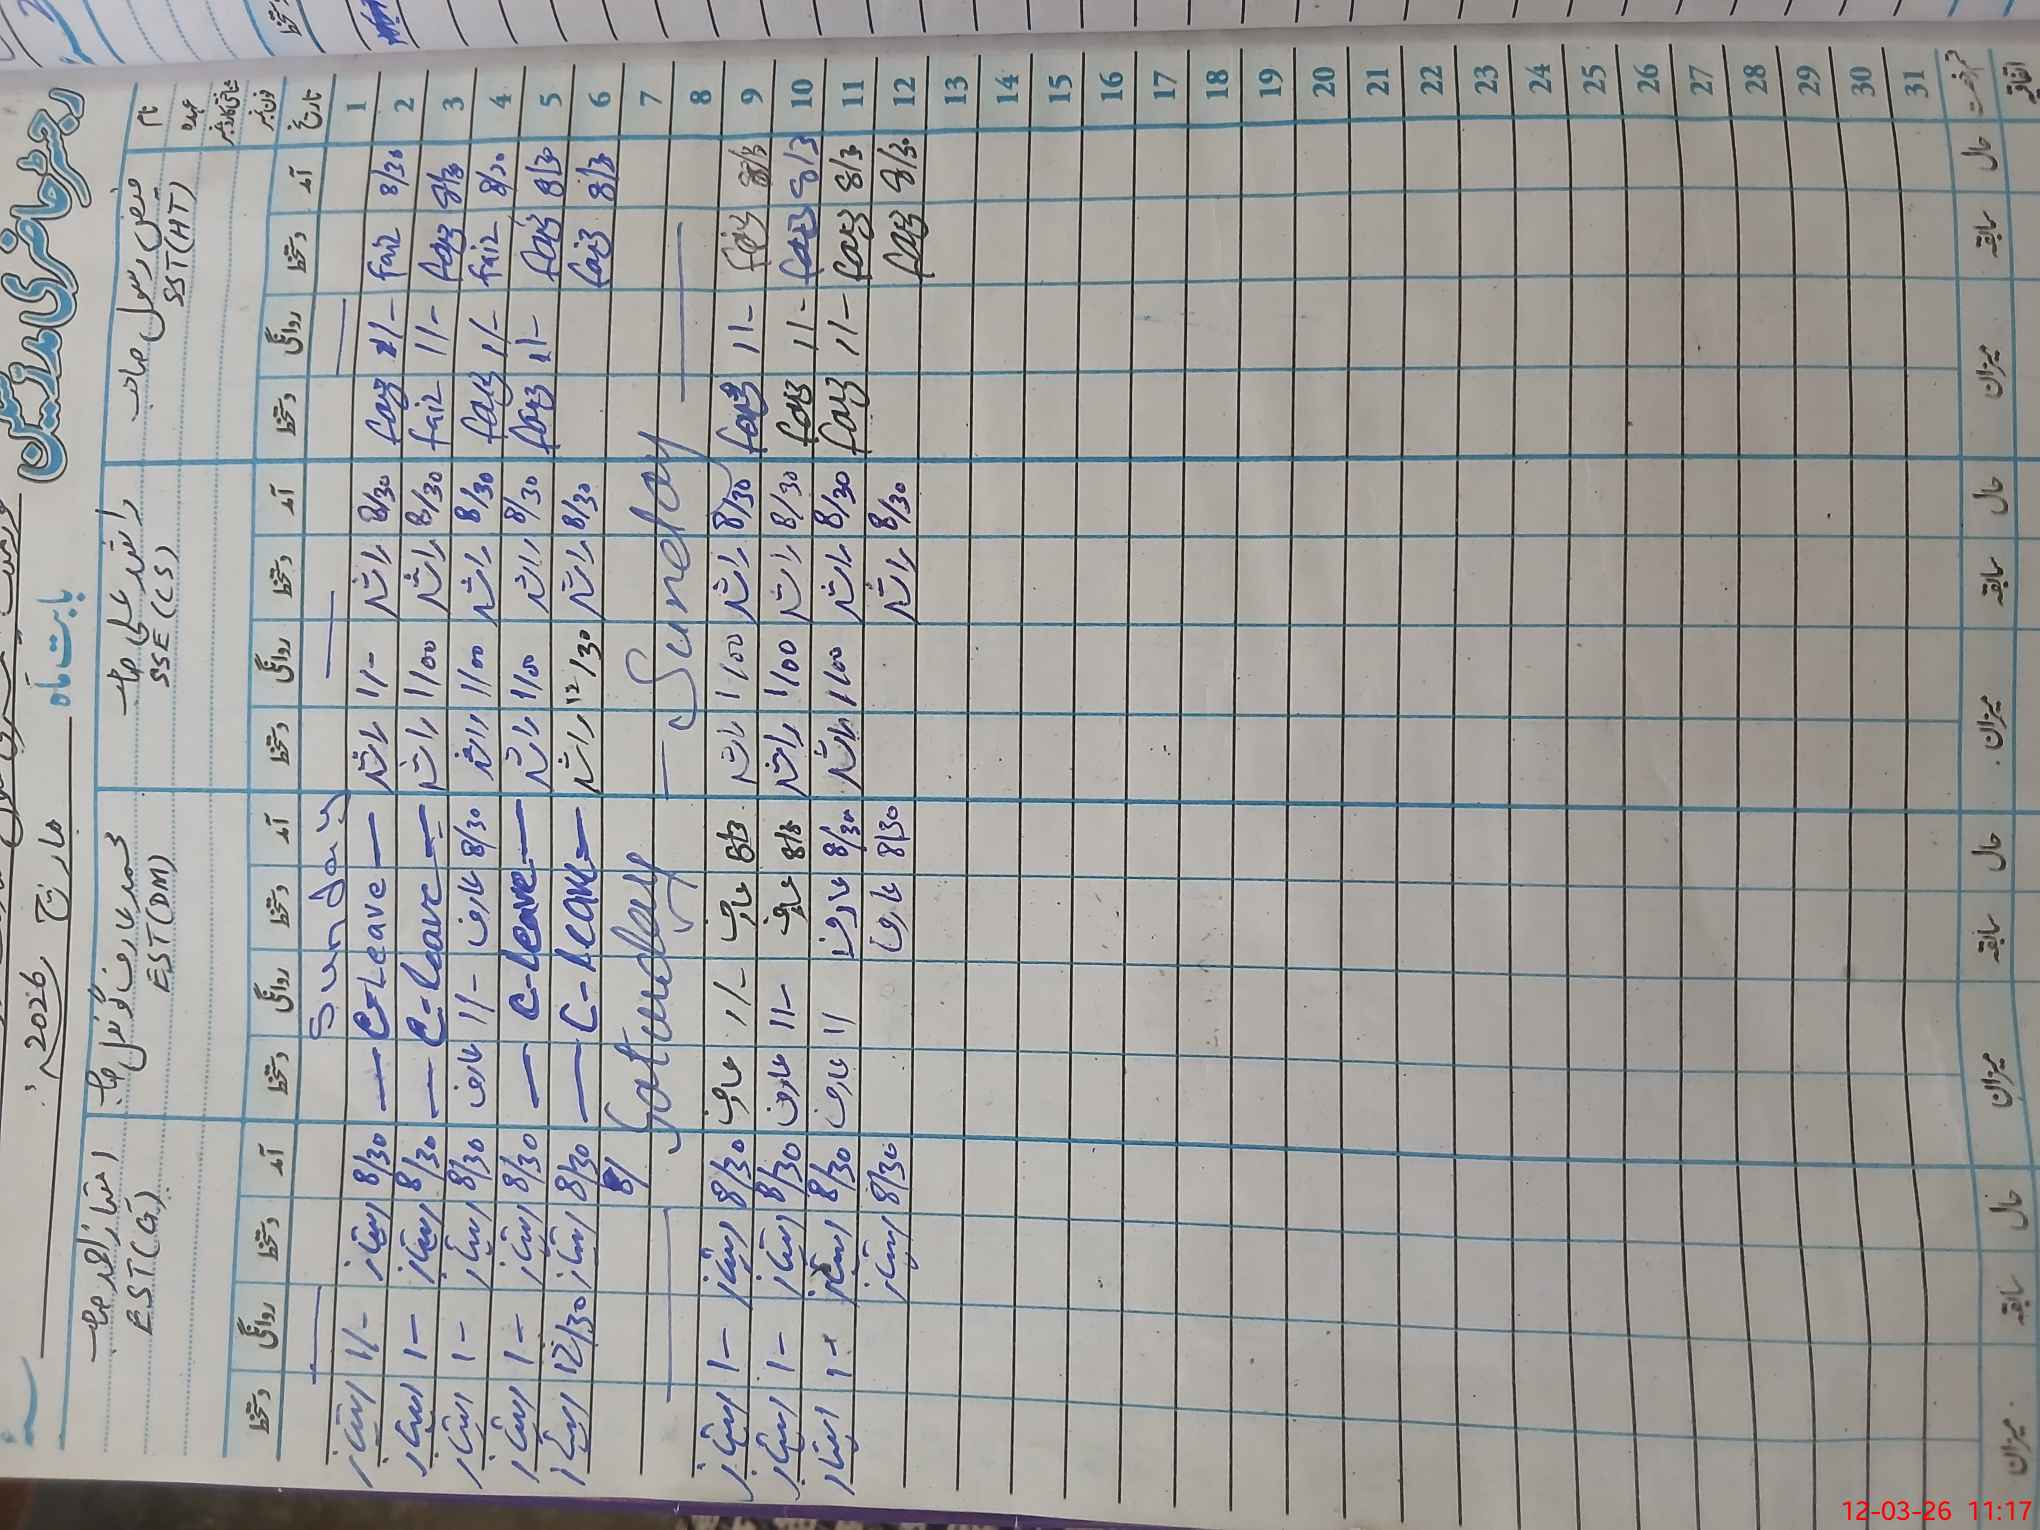 رجسٹر حاضری مدرسین
بابت ماہ مارچ 2026ء
نام فیض رسول صاحب راشد علی صاحب محمد عارف گوندل صاحب امتیاز احمد صاحب
عہدہ SST(HT) SSE(CS) EST(DM) EST(G)
شناختی کارڈ نمبر
فون نمبر
تاریخ آمد دستخط روانگی دستخط آمد دستخط روانگی دستخط آمد دستخط روانگی دستخط آمد دستخط روانگی دستخط
1 — — Sunday —
2 8/30 Faiz 1/- Faiz 8/30 راشد 1/- راشد — C-Leave — 8/30 امتیاز 1/- امتیاز
3 8/3 Faiz 1/- Faiz 8/30 راشد 1/00 راشد — C-Leave — 8/30 امتیاز 1- امتیاز
4 8/30 Faiz 1/- Faiz 8/30 راشد 1/00 راشد 8/30 عارف 1/- عارف 8/30 امتیاز 1- امتیاز
5 8/3 Faiz 1/- Faiz 8/30 راشد 1/00 راشد — C-Leave — 8/30 امتیاز 1- امتیاز
6 8/3 Faiz 8/30 راشد 12/30 راشد — C-Leave — 8/30 امتیاز 12/30 امتیاز
7 Saturday 8/
8 — Sunday — —
9 8/3 Faiz 1/- Faiz 8/30 راشد 1/00 راشد 8/3 عارف 1/- عارف 8/30 امتیاز 1- امتیاز
10 8/3 Faiz 1/- Faiz 8/30 راشد 1/00 راشد 8/3 عارف 1/- عارف 8/30 امتیاز 1- امتیاز
11 8/3 Faiz 1/- Faiz 8/30 راشد 1/00 راشد 8/30 عارف 1/ عارف 8/30 امتیاز 1- امتیاز
12 8/30 Faiz 8/30 راشد 8/30 عارف 8/30 امتیاز
13
14
15
16
17
18
19
20
21
22
23
24
25
26
27
28
29
30
31
حال سابقہ میزان حال سابقہ میزان حال سابقہ میزان حال سابقہ میزان
اتفاقیہ
12-03-26 11:17